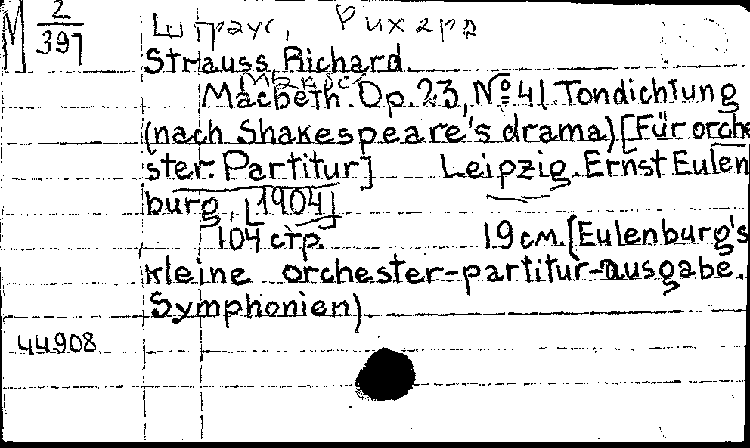 М 2/397
Штраус, Рихард
Strauss Richard.
Macbeth. Op. 23, № 41. Tondichtung
(nach Shakespeare's drama) [Für orche
ster. Partitur] Leipzig. Ernst Eulen
burg, [1904]
104 стр. 19 см. [Eulenburg's
kleine orchester-partitur-ausgabe.
Symphonien)
44908